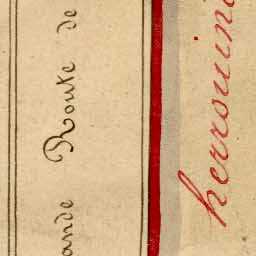 ande Route de
herrouin